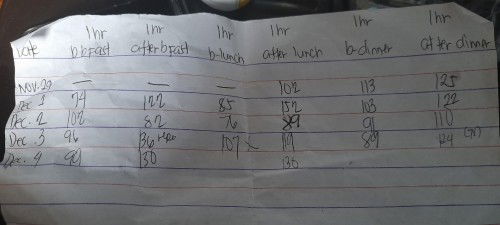 1hr 1hr 1hr 1hr 1hr 1hr
Date b-bfast after bfast b-lunch after lunch b-dinner after dinner
Nov. 29 — — — 102 113 125
Dec. 1 74 122 85 152 103 122
Dec. 2 102 82 76 89 91 110
Dec. 3 96 136 107 117 89
Dec. 4 90 130 130